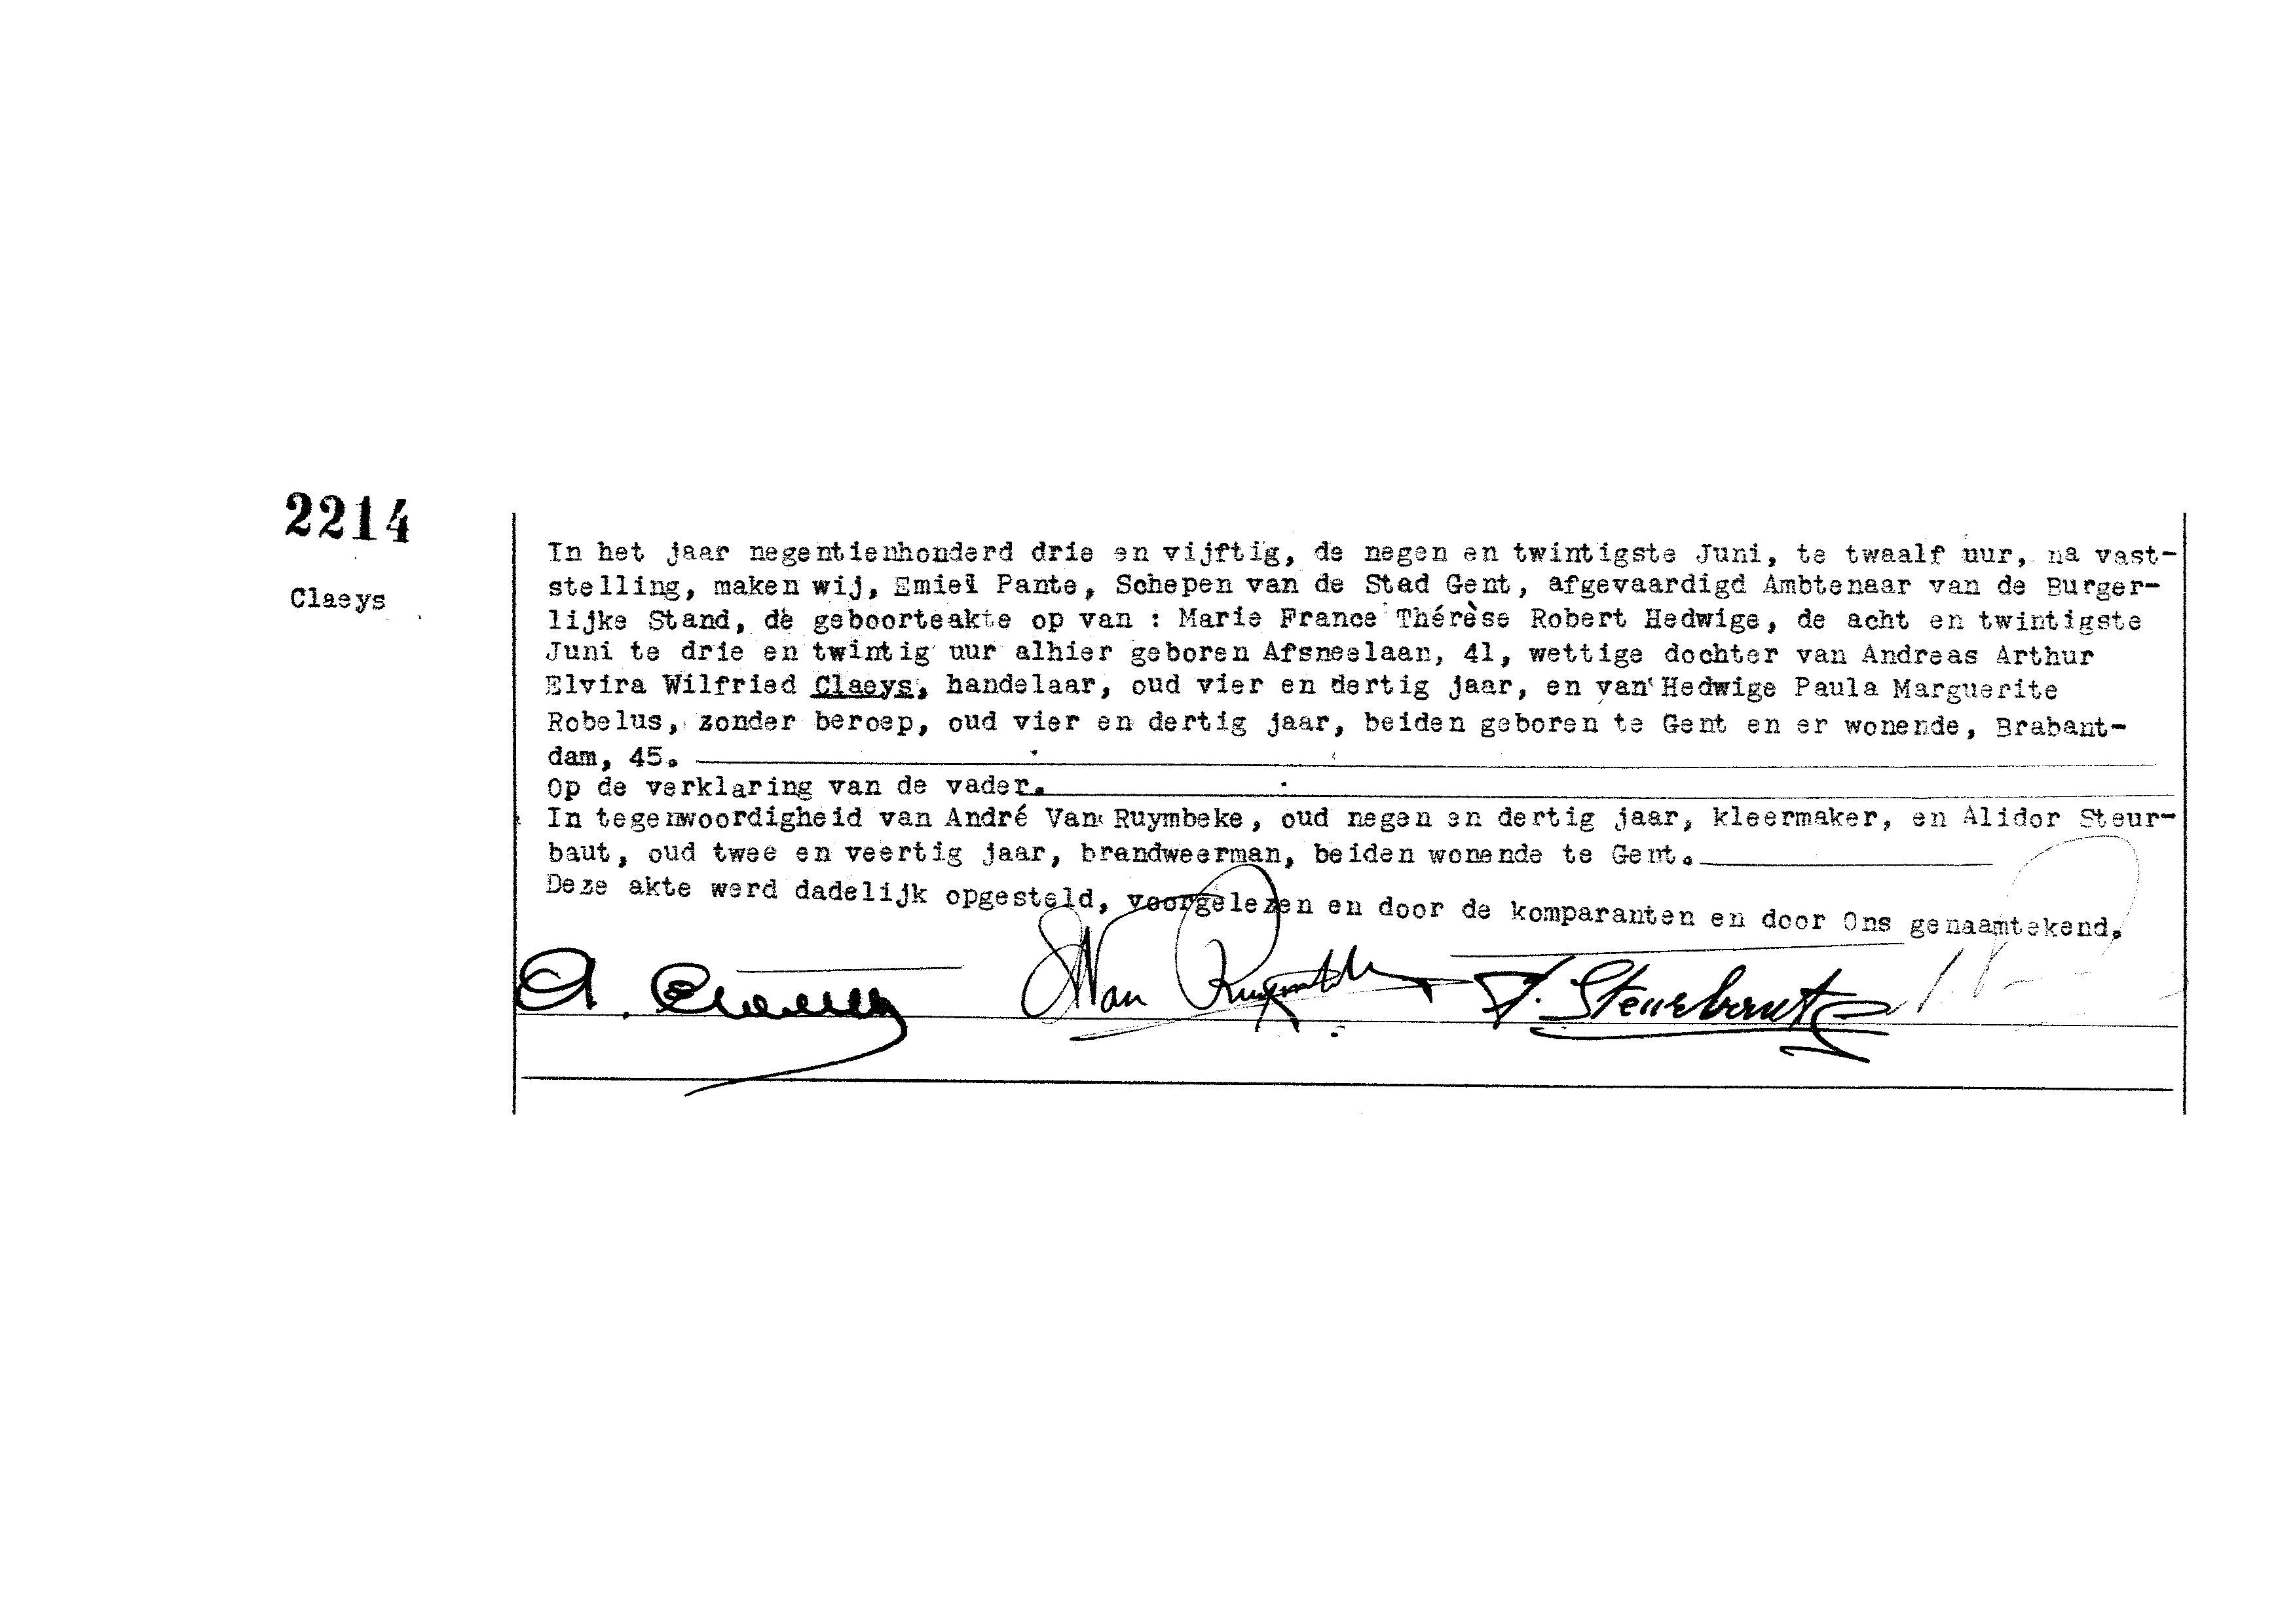 2214
Claeys
In het jaar negentienhonderd drie en vijftig, de negen en twintigste Juni, te twaalf uur, na vast-
stelling, maken wij, Emiel Pante, Schepen van de Stad Gent, afgevaardigd Ambtenaar van de Burger-
lijke Stand, de geboorteakte op van : Marie France Thérèse Robert Hedwige, de acht en twintigste
Juni te drie en twintig uur alhier geboren Afsneelaan, 41, wettige dochter van Andreas Arthur
Elvira Wilfried Claeys, handelaar, oud vier en dertig jaar, en van Hedwige Paula Marguerite
Robelus, zonder beroep, oud vier en dertig jaar, beiden geboren te Gent en er wonende, Brabant-
dam, 45.
Op de verklaring van de vader.
In tegenwoordigheid van André Van Ruymbeke, oud negen en dertig jaar, kleermaker, en Alidor Steur-
baut, oud twee en veertig jaar, brandweerman, beiden wonende te Gent.
Deze akte werd dadelijk opgesteld, voorgelezen en door de komparanten en door Ons genaamtekend.
A. Claeys Van Ruymbeke A. Steurbaut